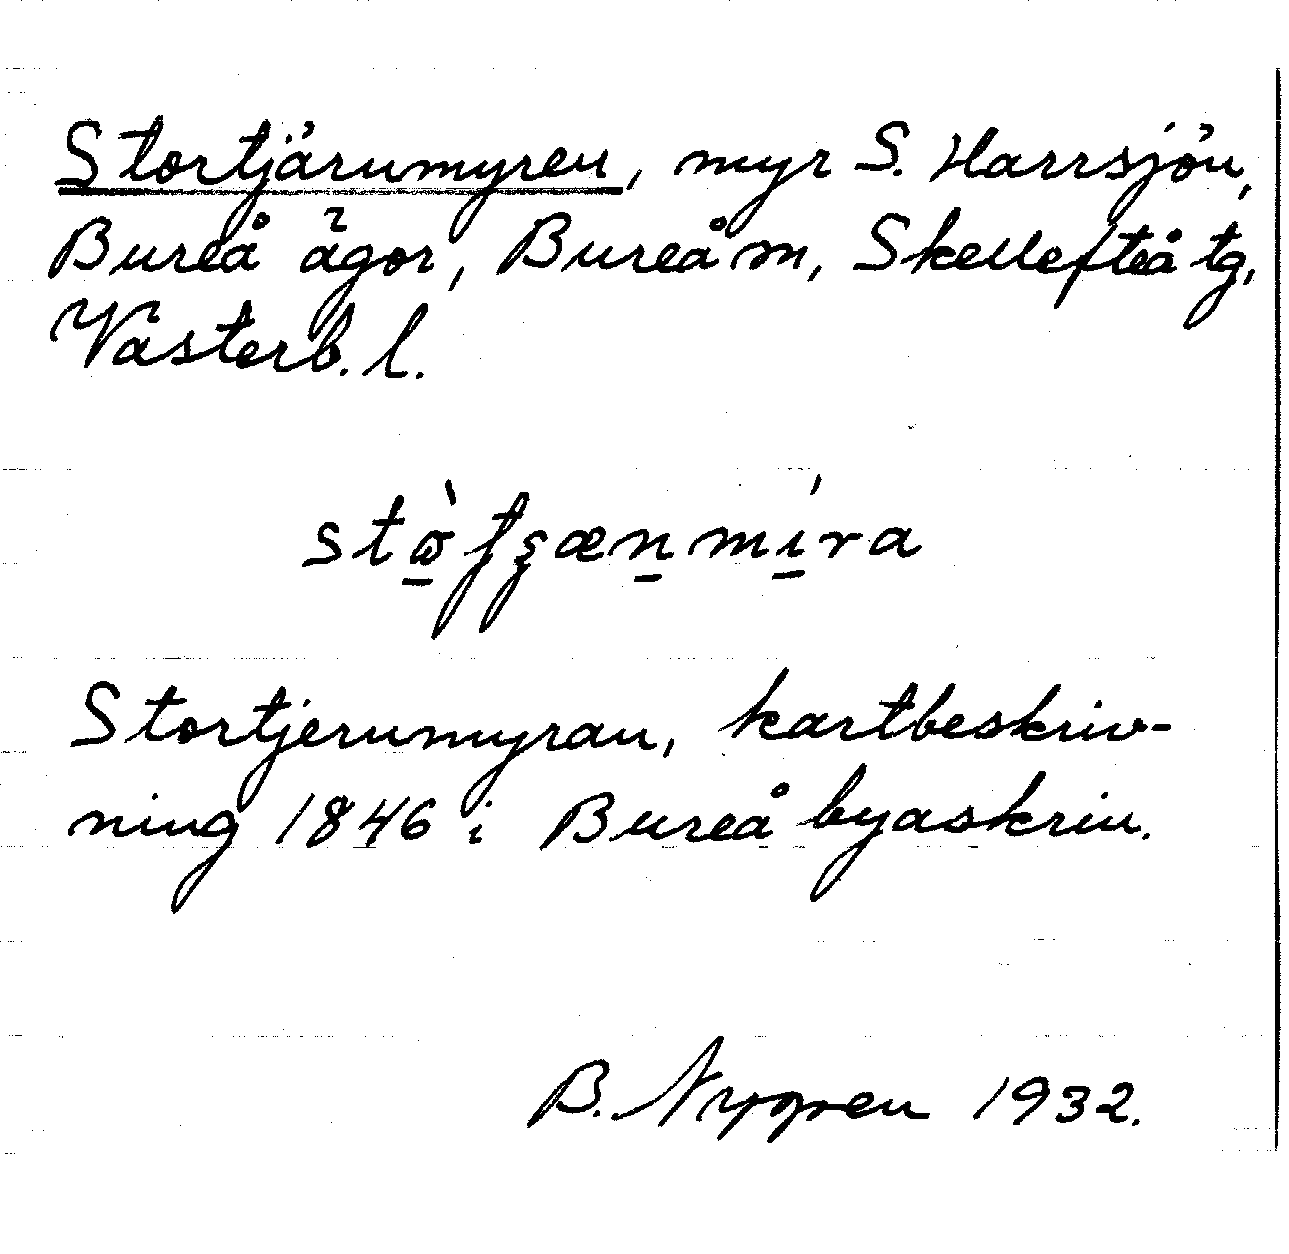 Stortjärnmyren, myr S. Harrsjön,
Bureå ägor, Bureå m, Skellefteå tg,
Västerb. l.
Stortjernmyran, kartbeskriv-
ning 1846 i Bureå byaskrin.
B. Nygren 1932.